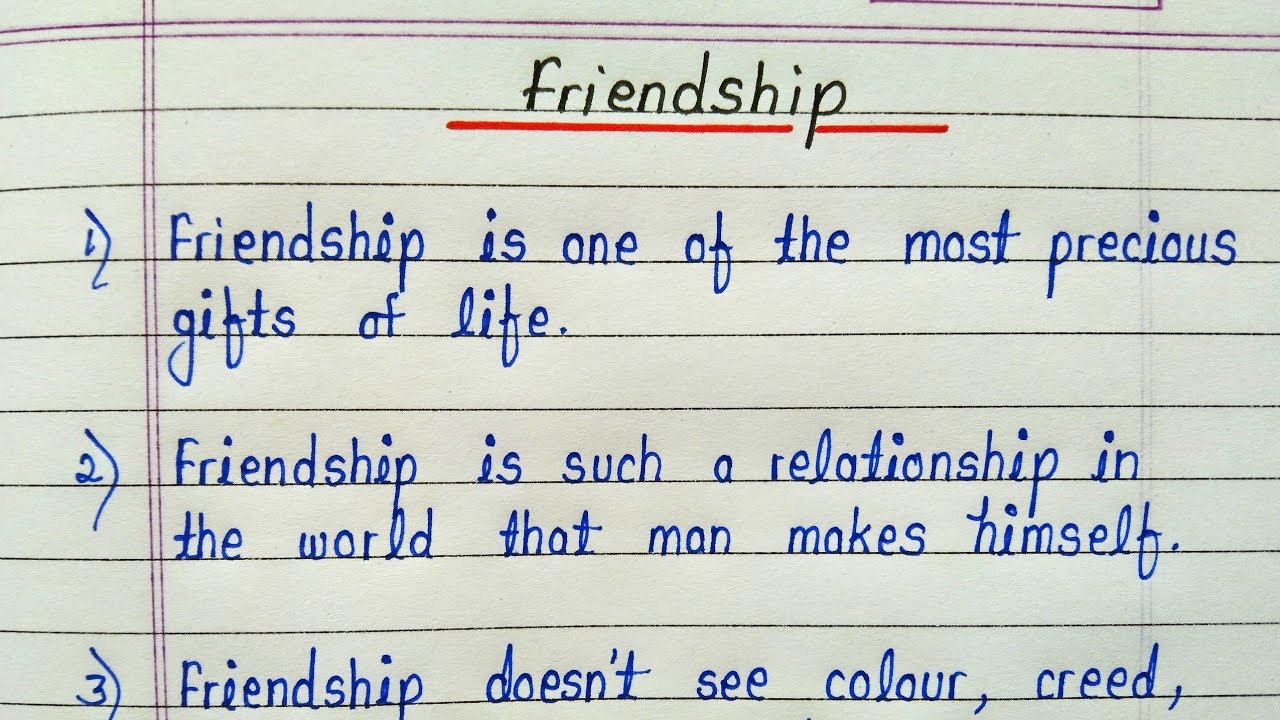 Friendship
1) Friendship is one of the most precious
gifts of life.
2) Friendship is such a relationship in
the world that man makes himself.
3) Friendship doesn't see colour, creed,